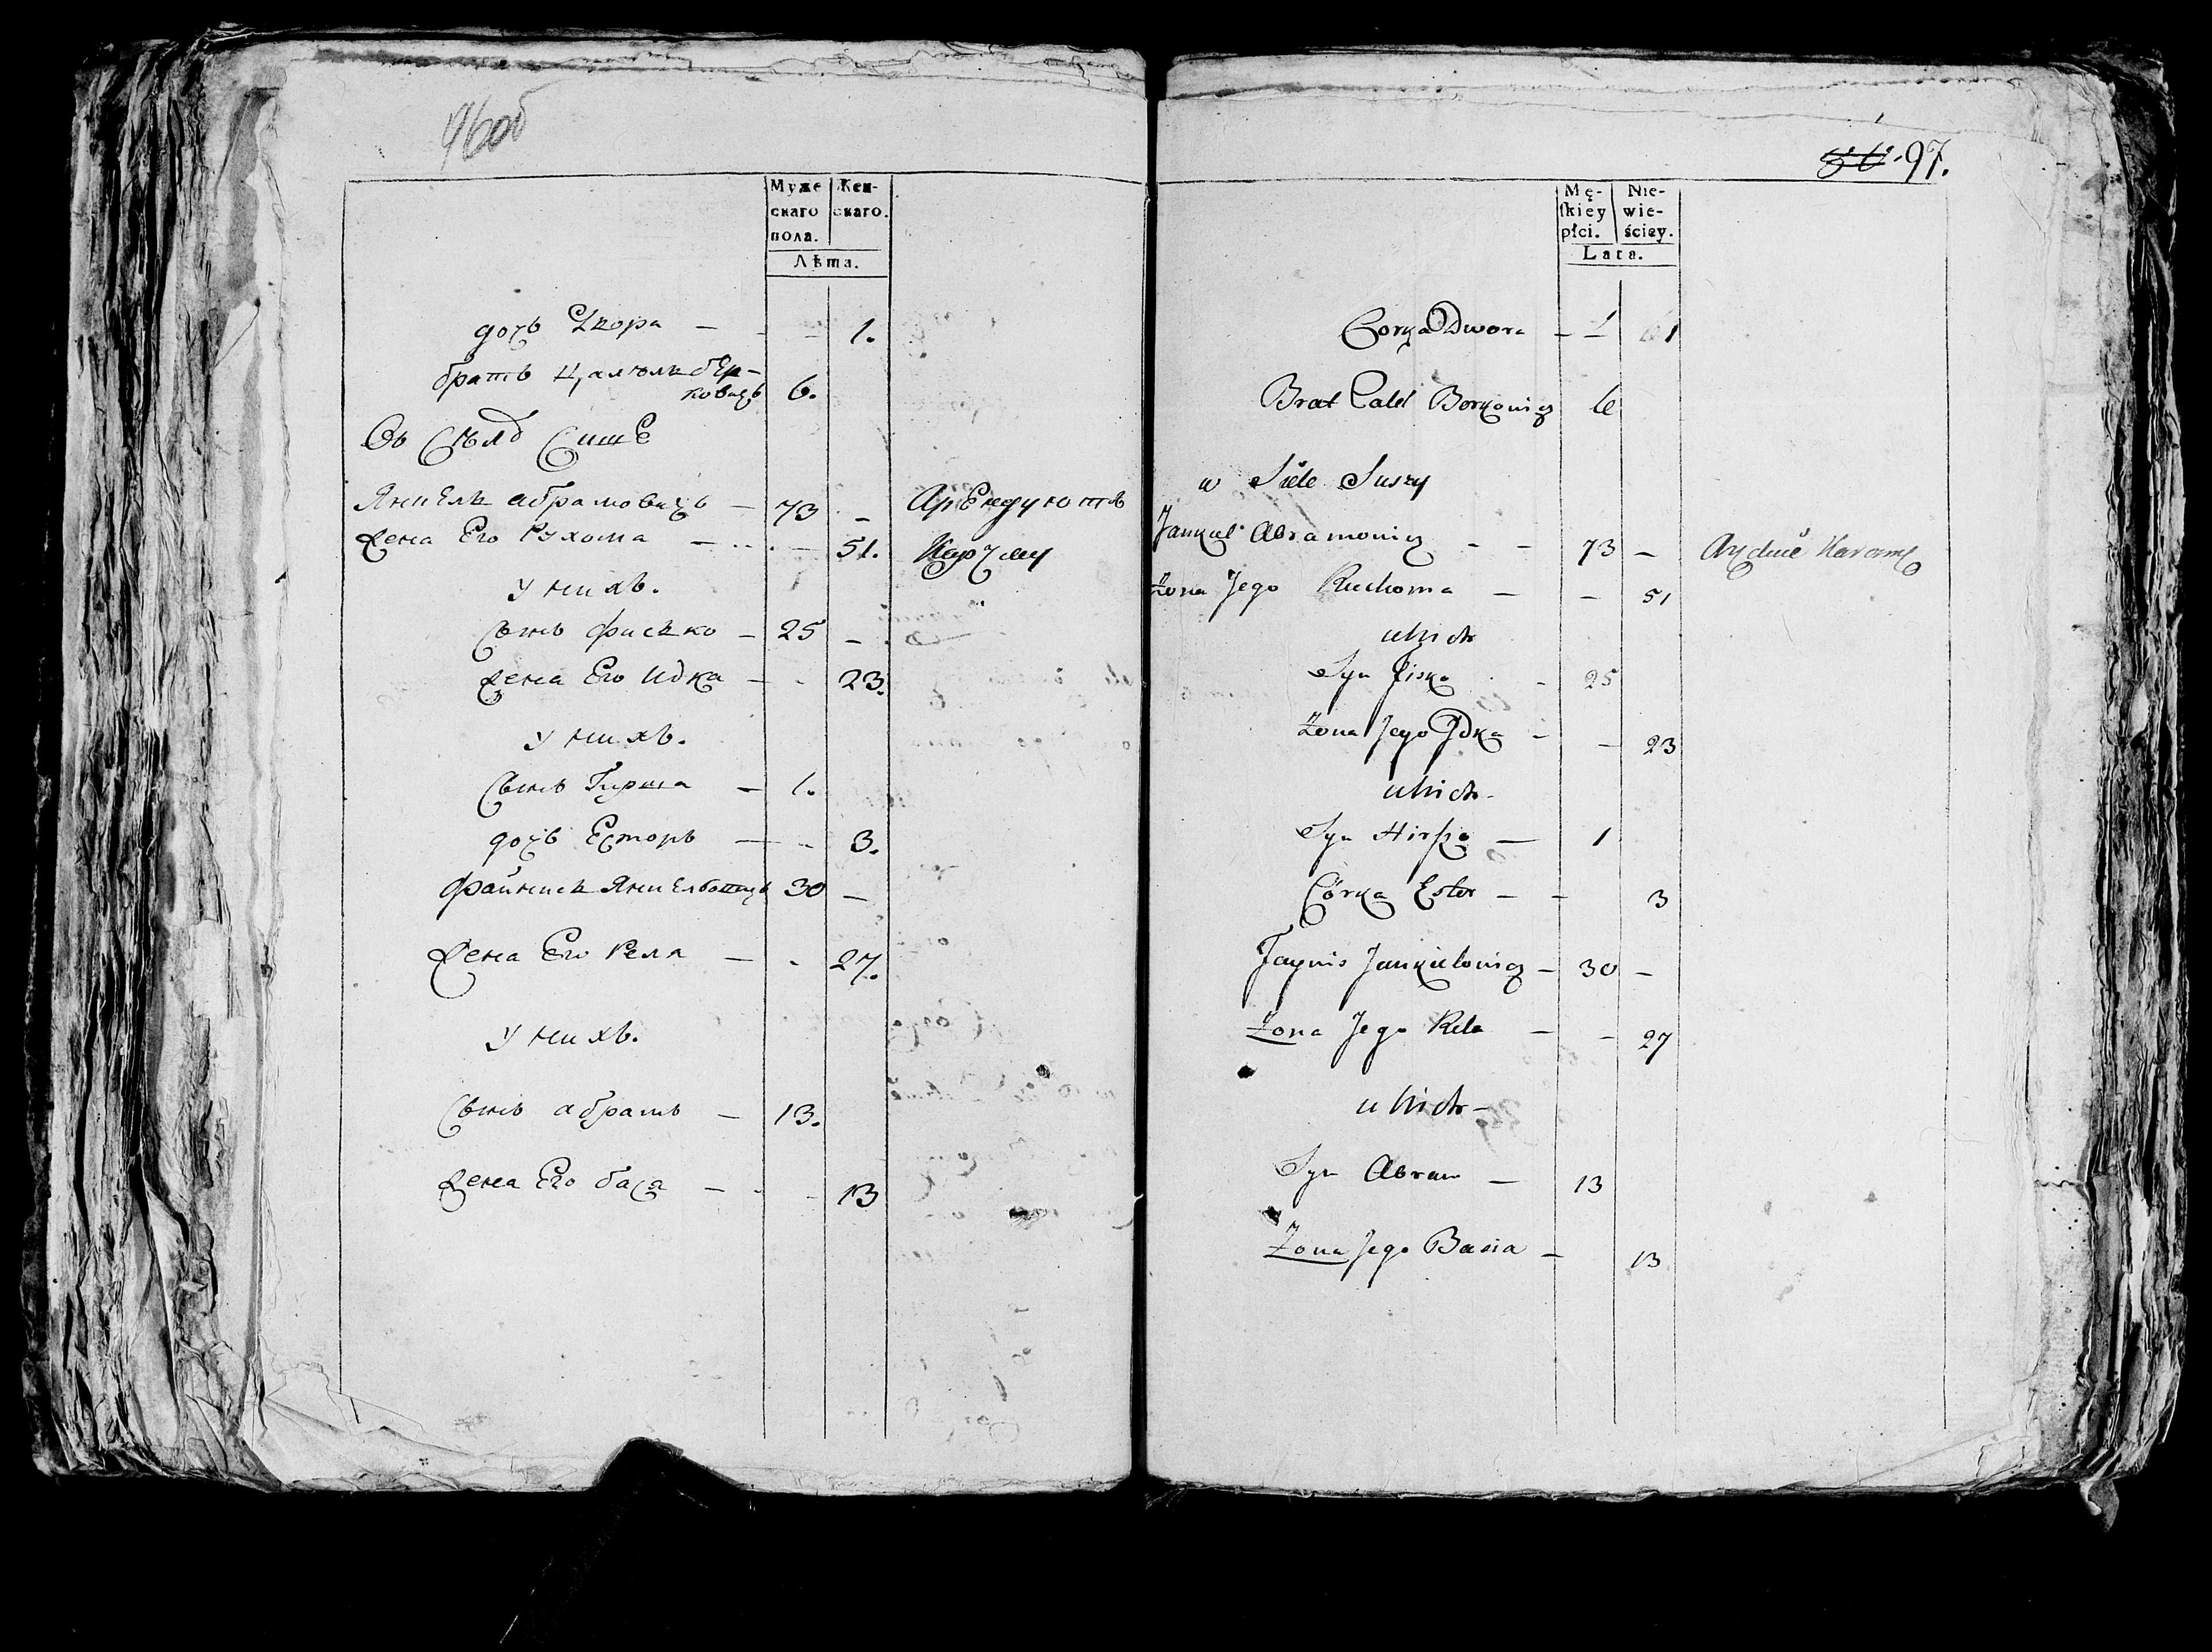 96об
Муже Жен-
скаго скаго.
пола.
Лѣта.
дочь Двора — 1.
братъ Цалюль Бер-
ковичъ 6.
Въ Сѣлѣ Сушѣ
Янкель Абрамовичъ — 73 — Арендуютъ
жена Его Рухома — — 51. Карчму
у нихъ.
Сынъ Фисько — 25 —
жена Его Идка — - 23.
у нихъ.
Сынъ Гирша — 1.
дочь Есторъ — - 3.
Файнисъ Янкелевичъ 30 —
жена Его Реля — - 27.
у нихъ.
Сынъ Абрамъ — 13.
жена Его Бася — - 13
97.
Mę- Nie-
skiey wie-
płci. ściey.
Lata.
Corka Dwora — — 1
Brat Calel Borkowicz 6
w Siele Suszy
Jankiel Abramowicz - - 73 —
Żona Jego Ruchoma — — 51
u nich
Syn Fisko - 25
Żona Jego Idka - — 23
u nich -
Syn Hirsza — 1
Córka Ester — - 3
Faynis Jankielowicz — 30 —
Żona Jego Rela — - 27
u nich —
Syn Abram — 13
Żona Jego Basia — 13